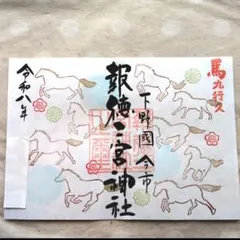 馬九行久
下野國 今市
報徳二宮神社
令和八年